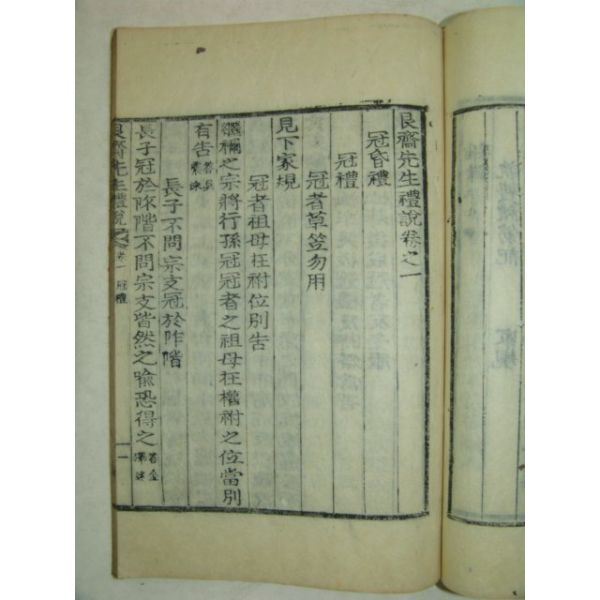 艮齋先生禮說卷之一
冠昏禮
冠禮
冠者草笠勿用
見下家規
冠者祖母在祔位別告
繼禰之宗將行孫冠冠者之祖母在權祔之位當別
有告 答吳
長子不問宗支冠於阼階
長子冠於阼階不問宗支皆然之喩恐得之 答金澤述
艮齋先生禮說 卷一 冠禮 一